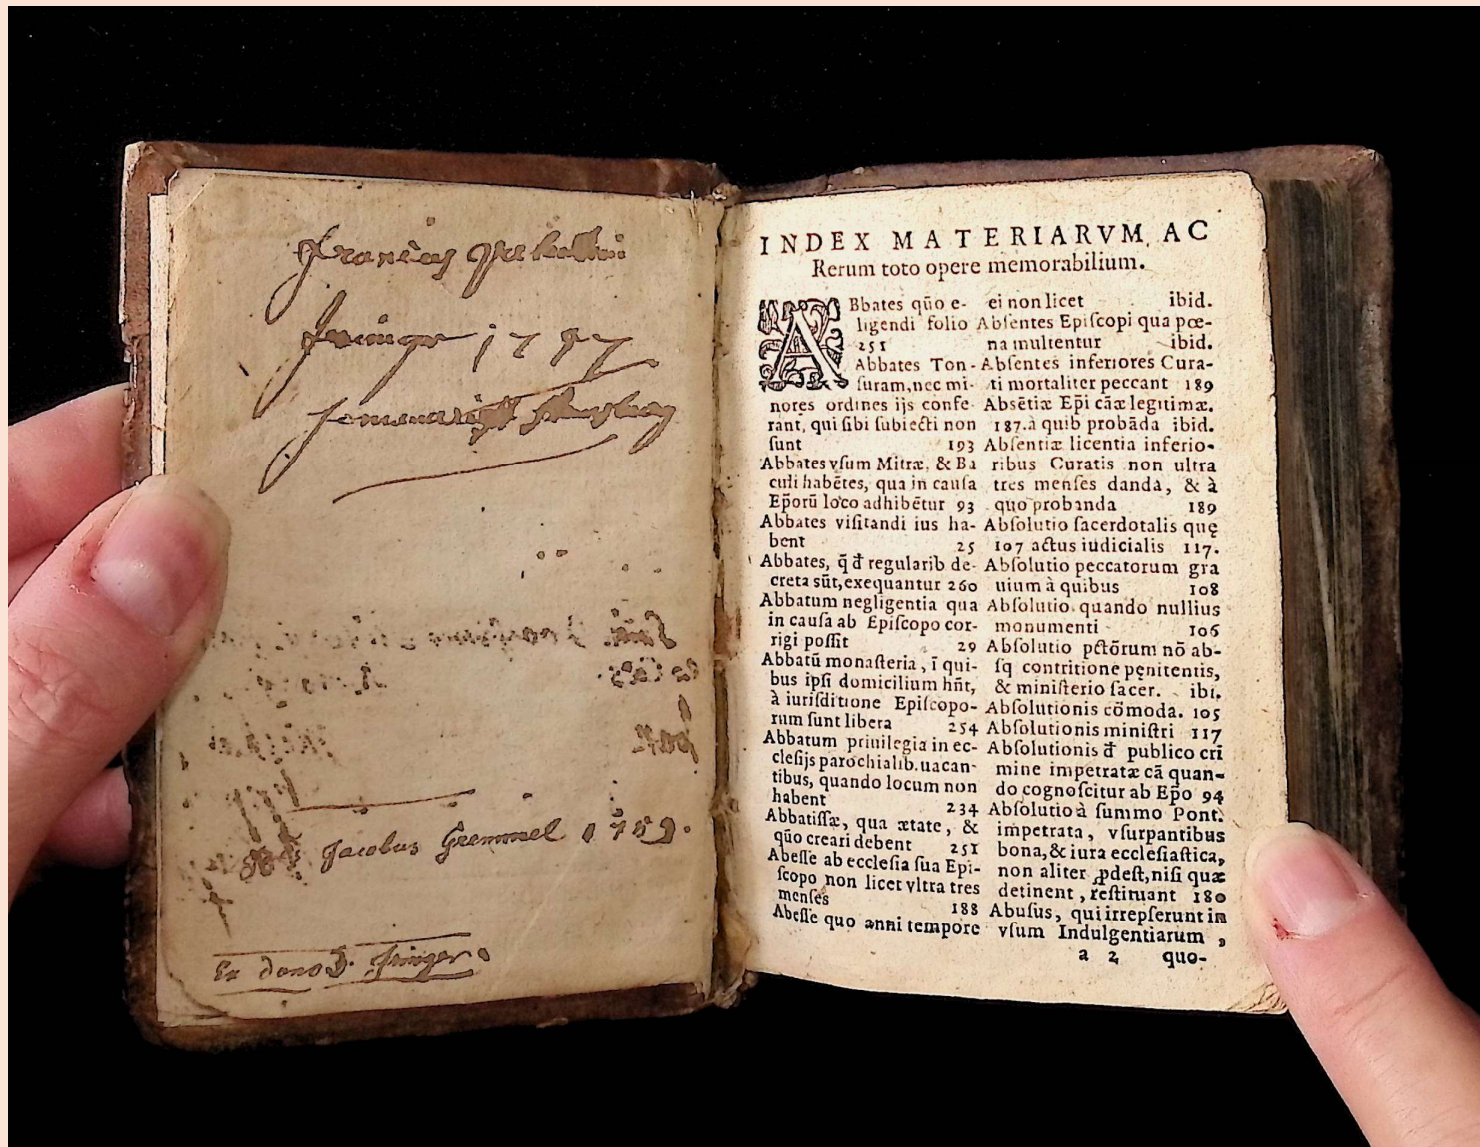 1757
Jacobus Gremmel 1759.
Ex dono D. Jninger.
INDEX MATERIARVM, AC
Rerum toto opere memorabilium.
ABbates qũo e-
ligendi folio
251
Abbates Ton-
ſuram, nec mi-
nores ordines ijs confe-
rant, qui ſibi ſubiecti non
ſunt 193
Abbates vſum Mitræ, & Ba
culi habẽtes, qua in cauſa
Ep̃orũ loco adhibẽtur 93
Abbates viſitandi ius ha-
bent 25
Abbates, q̃ đ regularib de-
creta sũt, exequantur 260
Abbatum negligentia qua
in cauſa ab Epiſcopo cor-
rigi poſſit 29
Abbatũ monaſteria, ĩ qui-
bus ipſi domicilium hñt,
à iuriſditione Epiſcopo-
rum ſunt libera 254
Abbatum priuilegia in ec-
cleſijs parochialib. uacan-
tibus, quando locum non
habent 234
Abbatiſſæ, qua ætate, &
qũo creari debent 251
Abeſſe ab eccleſia ſua Epi-
ſcopo non licet vltra tres
menſes 188
Abeſſe quo anni tempore
ei non licet ibid.
Abſentes Epiſcopi qua pœ-
na multentur ibid.
Abſentes inferiores Cura-
ti mortaliter peccant 189
Abſẽtiæ Ep̃i cãæ legitimæ.
187. à quib probãda ibid.
Abſentiæ licentia inferio-
ribus Curatis non ultra
tres menſes danda, & à
quo probanda 189
Abſolutio ſacerdotalis quę
107 actus iudicialis 117.
Abſolutio peccatorum gra
uium à quibus 108
Abſolutio quando nullius
monumenti 106
Abſolutio pctõrum nõ ab-
ſq contritione pęnitentis,
& miniſterio ſacer. ibi.
Abſolutionis cõmoda. 105
Abſolutionis miniſtri 117
Abſolutionis đ publico cri
mine impetratæ cã quan-
do cognoſcitur ab Ep̃o 94
Abſolutio à ſummo Pont.
impetrata, vſurpantibus
bona, & iura eccleſiaſtica,
non aliter ꝓdeſt, niſi quæ
detinent, reſtituant 180
Abuſus, qui irrepſerunt in
vſum Indulgentiarum,
a 2 quo-